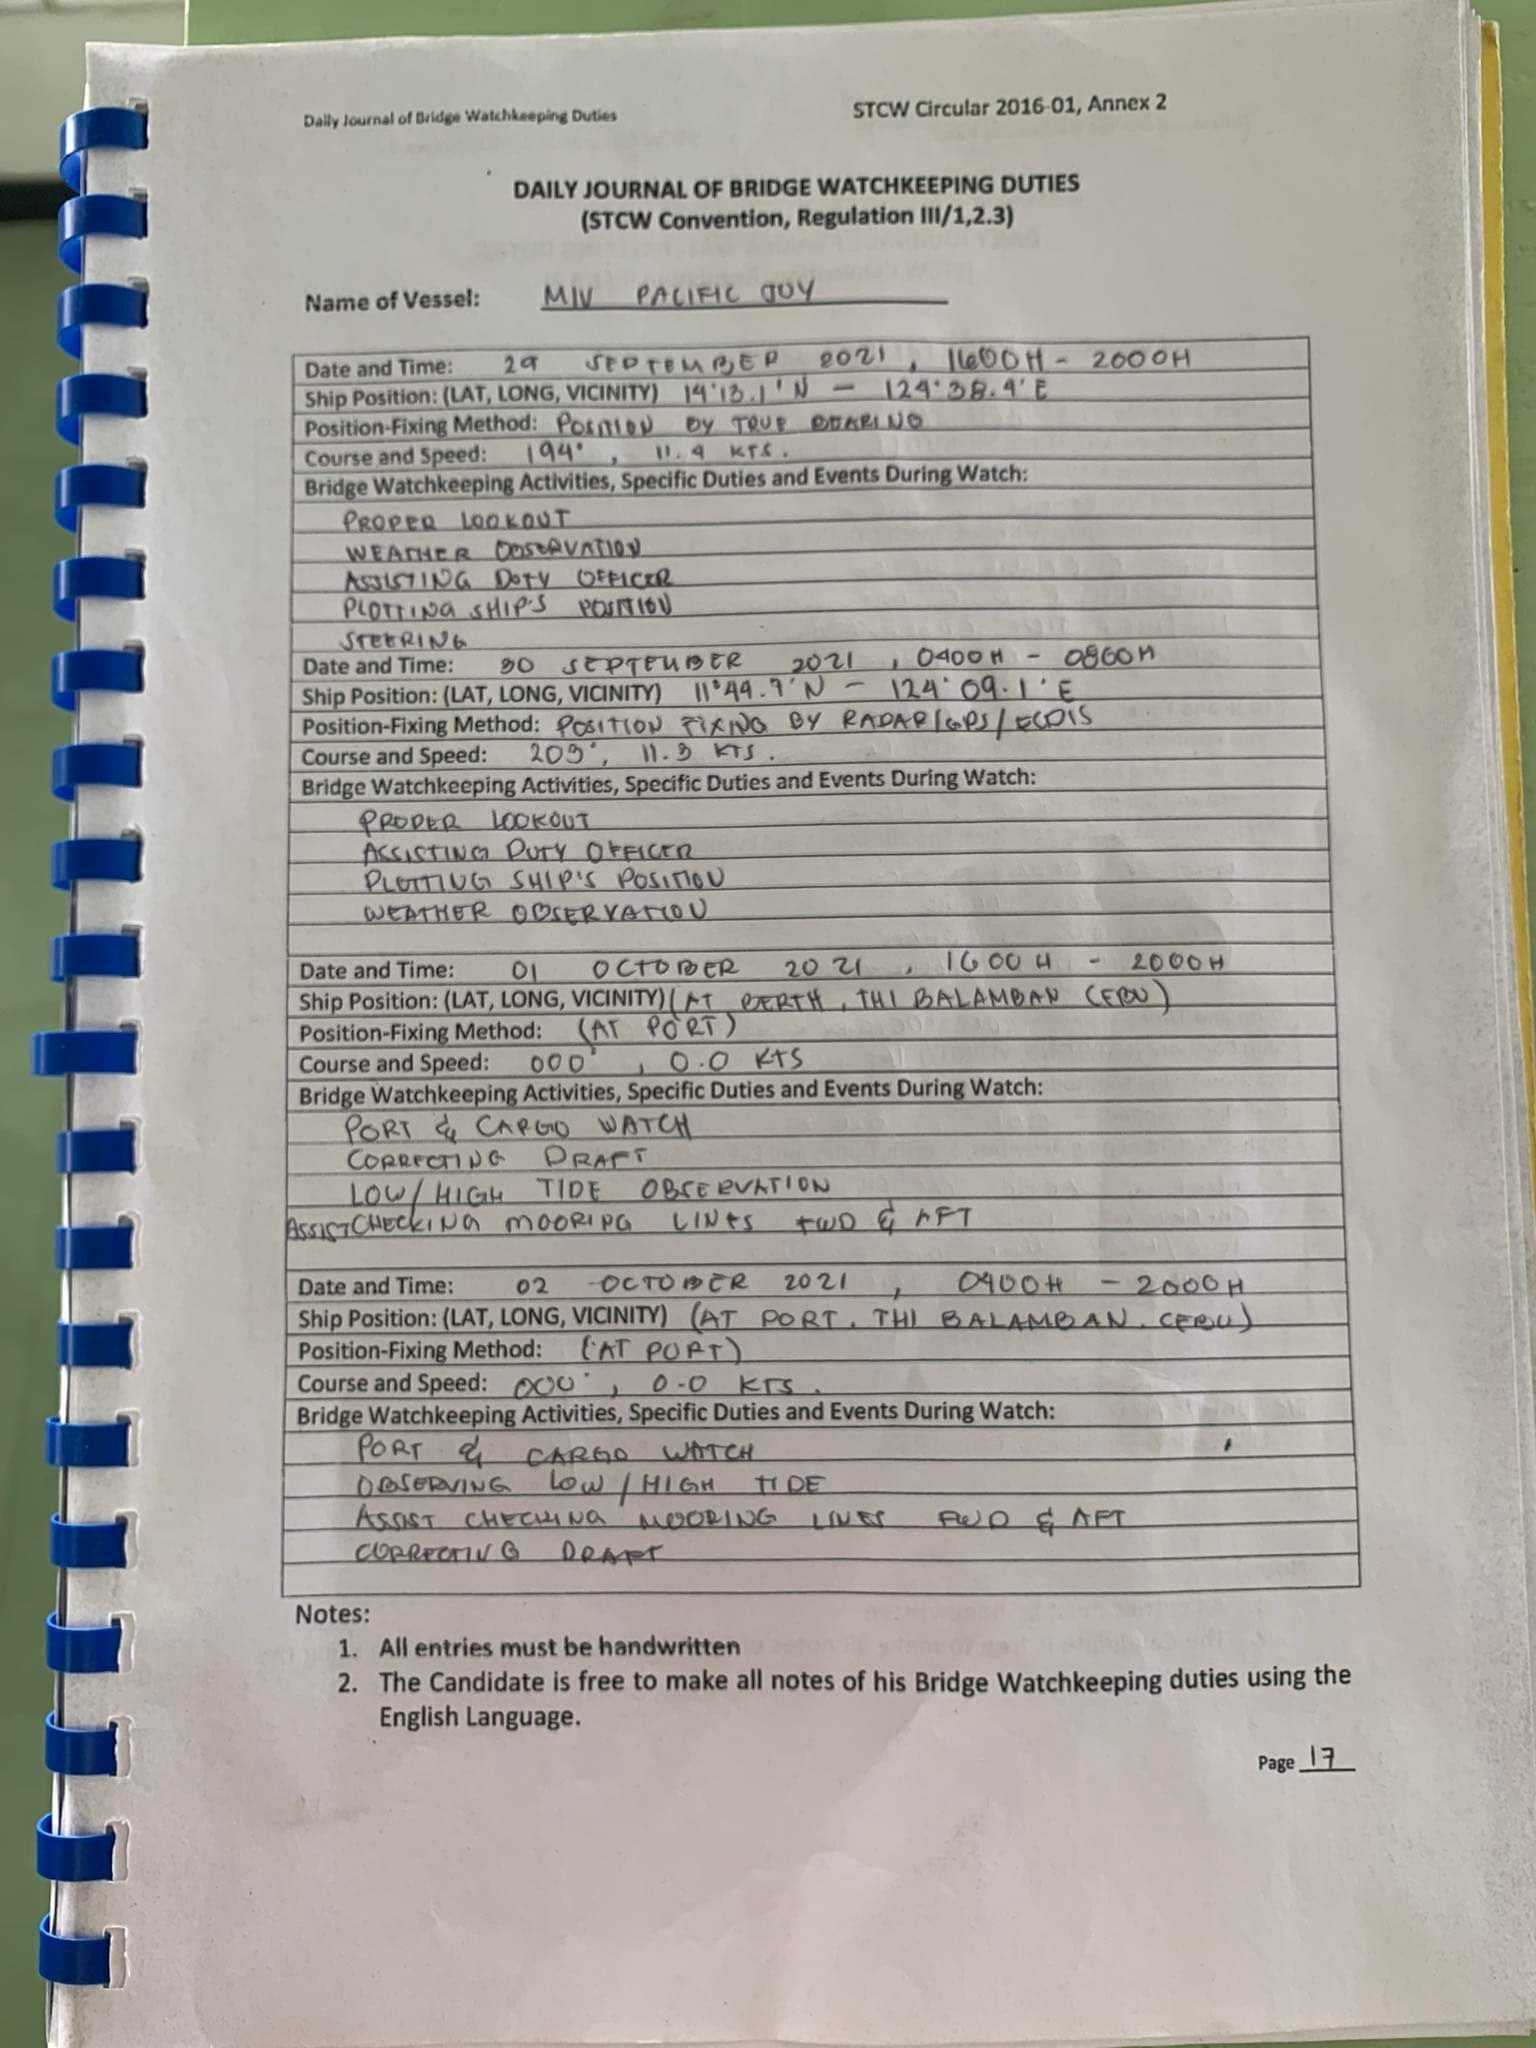 Daily Journal of Bridge Watchkeeping Duties STCW Circular 2016-01, Annex 2
DAILY JOURNAL OF BRIDGE WATCHKEEPING DUTIES
(STCW Convention, Regulation III/1,2.3)
Name of Vessel: M/V PACIFIC JOY
Date and Time: 29 SEPTEMBER 2021, 1600H - 2000H
Ship Position: (LAT, LONG, VICINITY) 14°13.1'N - 124°38.4'E
Position-Fixing Method: POSITION BY TRUE BEARING
Course and Speed: 194°, 11.4 KTS.
Bridge Watchkeeping Activities, Specific Duties and Events During Watch:
PROPER LOOKOUT
WEATHER OBSERVATION
ASSISTING DUTY OFFICER
PLOTTING SHIP'S POSITION
STEERING
Date and Time: 30 SEPTEMBER 2021, 0400H - 0800H
Ship Position: (LAT, LONG, VICINITY) 11°49.7'N - 124°09.1'E
Position-Fixing Method: POSITION FIXING BY RADAR/GPS/ECDIS
Course and Speed: 203°, 11.3 KTS.
Bridge Watchkeeping Activities, Specific Duties and Events During Watch:
PROPER LOOKOUT
ASSISTING DUTY OFFICER
PLOTTING SHIP'S POSITION
WEATHER OBSERVATION
Date and Time: 01 OCTOBER 2021, 1600H - 2000H
Ship Position: (LAT, LONG, VICINITY) (AT BERTH, THI BALAMBAN CEBU)
Position-Fixing Method: (AT PORT)
Course and Speed: 000°, 0.0 KTS
Bridge Watchkeeping Activities, Specific Duties and Events During Watch:
PORT & CARGO WATCH
CORRECTING DRAFT
LOW/HIGH TIDE OBSERVATION
ASSIST CHECKING MOORING LINES FWD & AFT
Date and Time: 02 OCTOBER 2021, 0400H - 2000H
Ship Position: (LAT, LONG, VICINITY) (AT PORT, THI BALAMBAN, CEBU)
Position-Fixing Method: (AT PORT)
Course and Speed: 000°, 0.0 KTS.
Bridge Watchkeeping Activities, Specific Duties and Events During Watch:
PORT & CARGO WATCH
OBSERVING LOW/HIGH TIDE
ASSIST CHECKING MOORING LINES FWD & AFT
CORRECTING DRAFT
Notes:
1. All entries must be handwritten
2. The Candidate is free to make all notes of his Bridge Watchkeeping duties using the
English Language.
Page 17